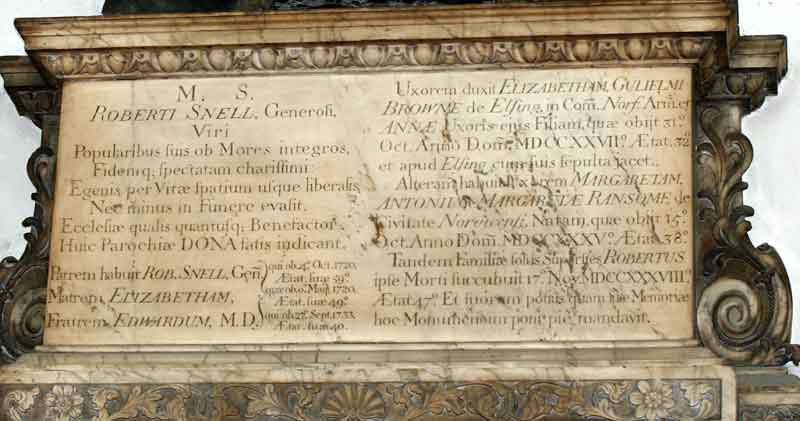 M. S.
ROBERTI SNELL, Generosi,
Viri
Popularibus suis ob Mores integros,
Fidemq; spectatam charissimi:
Egenis per Vitæ spatium usque liberalis,
Nec minus in Funere evasit.
Ecclesiæ qualis quantusq; Benefactor,
Huic Parochiæ DONA satis indicant.
Patrem habuit ROB. SNELL, Gen. qui ob. 4º Oct. 1720,
Ætat. suæ 59º
Matrem ELIZABETHAM, quæ ob. Maij. 1720,
Ætat. suæ 49º
Fratrem EDWARDUM, M.D. qui ob. 27º Sept. 1733,
Ætat. suæ 40.
Uxorem duxit ELIZABETHAM, GULIELMI
BROWNE de Elsing, in Com. Norf. Arm. et
ANNÆ Uxoris ejus Filiam, quæ obijt 31º
Oct. Anno Dom. MDCCXXVIIº. Ætat. 32º
et apud Elsing cum suis sepulta jacet.
Alteram habuit Uxorem MARGARETAM,
ANTONIJ et MARGARETÆ RANSOME de
Civitate Norwicensi, Natam, quæ obijt 14º
Oct. Anno Dom. MDCCXXXVº. Ætat. 38º
Tandem Familiæ solus Superstes ROBERTUS
ipse Morti succubuit 17º Nov. MDCCXXXVIIIº.
Ætat. 47º. Et suorum potius quam suæ Memoriæ
hoc Monumentum poni pie mandavit.